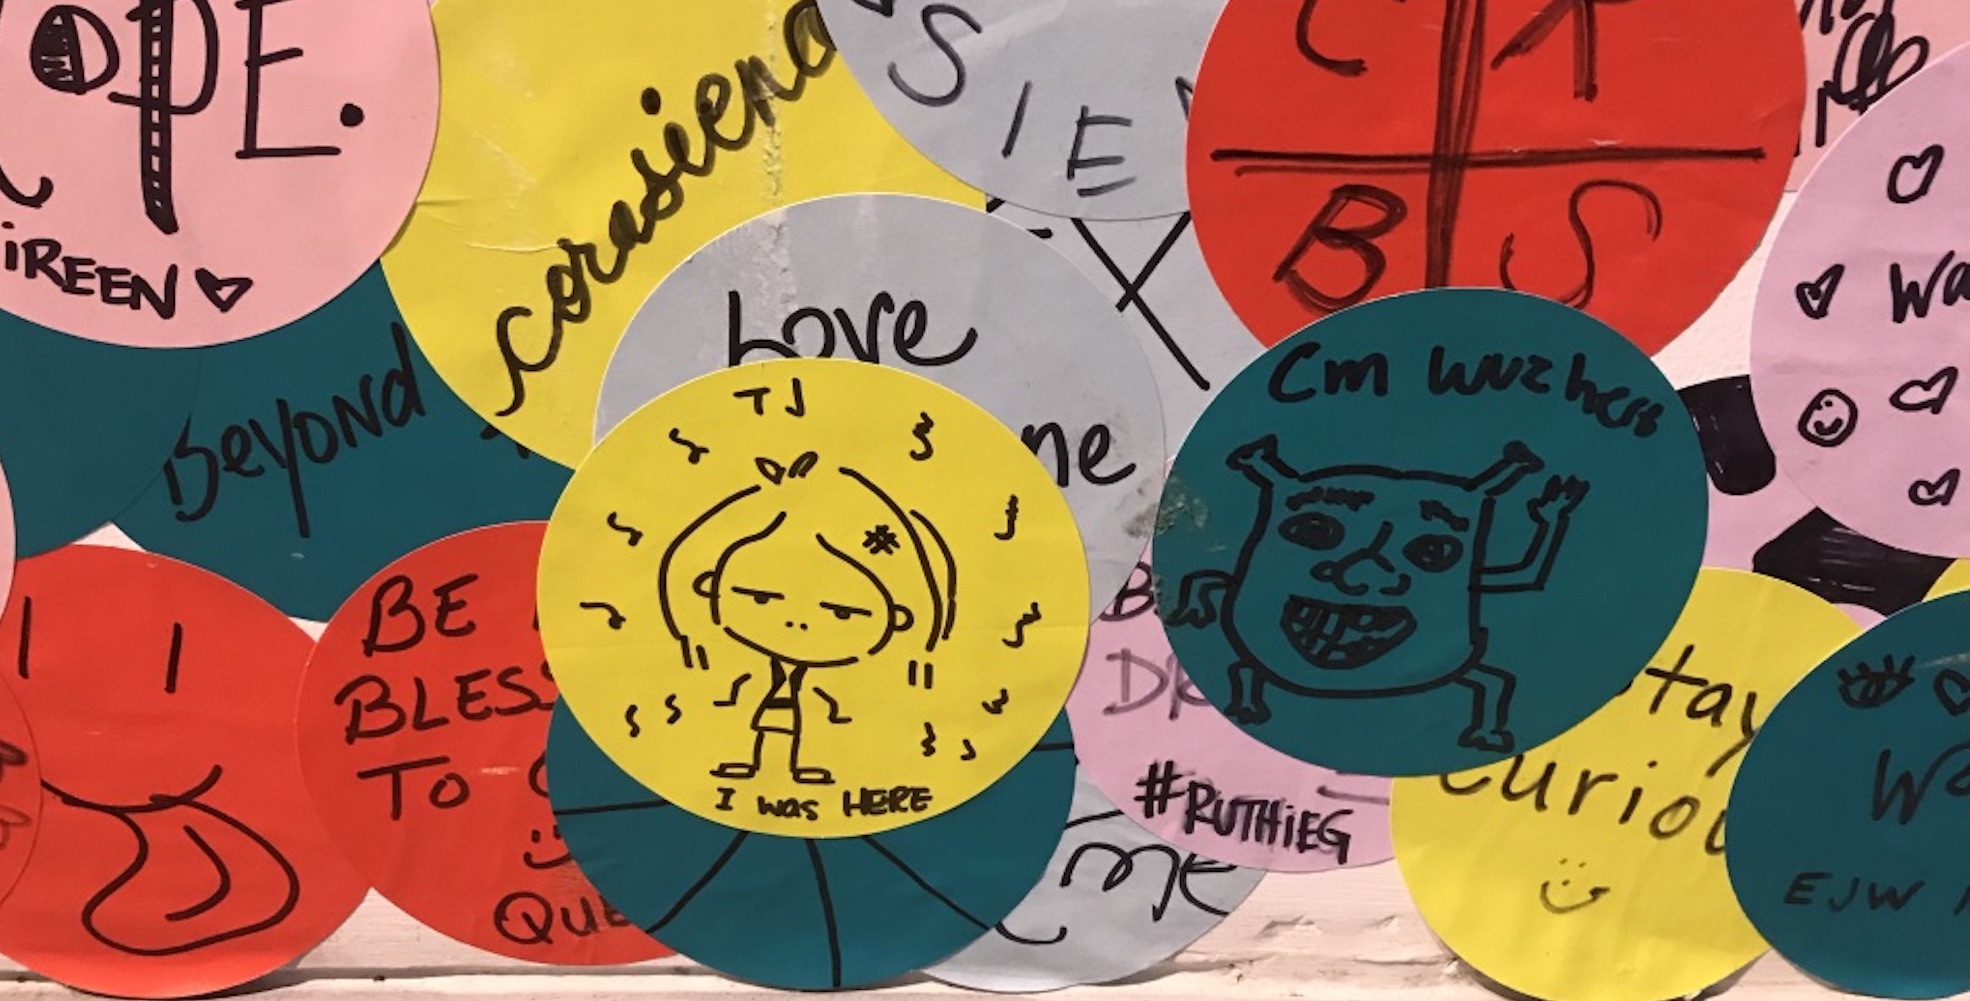 OPE.
iREEN
corasienc
SIE
C R
B S
Beyond
Love
me
TJ
#
I was HERE
Cm wuz here
Wa
BE
BLESS
TO
QUE
B
DR
#RUTHiEG
stay
curiou
ME
Wa
EJW